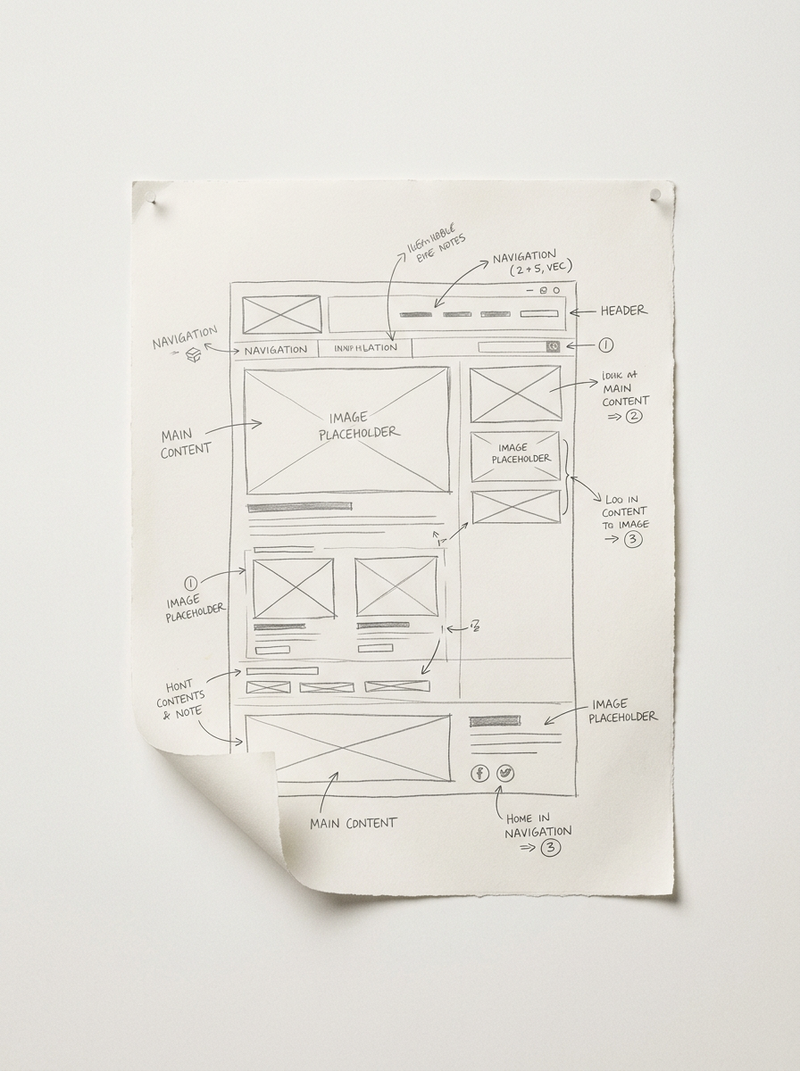 NOTES
NAVIGATION
(2 + 5, VEC)
HEADER
NAVIGATION
NAVIGATION
1
MAIN
CONTENT
⇒ 2
MAIN
CONTENT
IMAGE
PLACEHOLDER
IMAGE
PLACEHOLDER
LOO IN
CONTENT
TO IMAGE
→ 3
1
IMAGE
PLACEHOLDER
HONT
CONTENTS
& NOTE
IMAGE
PLACEHOLDER
f
MAIN CONTENT
HOME IN
NAVIGATION
⇒ 3